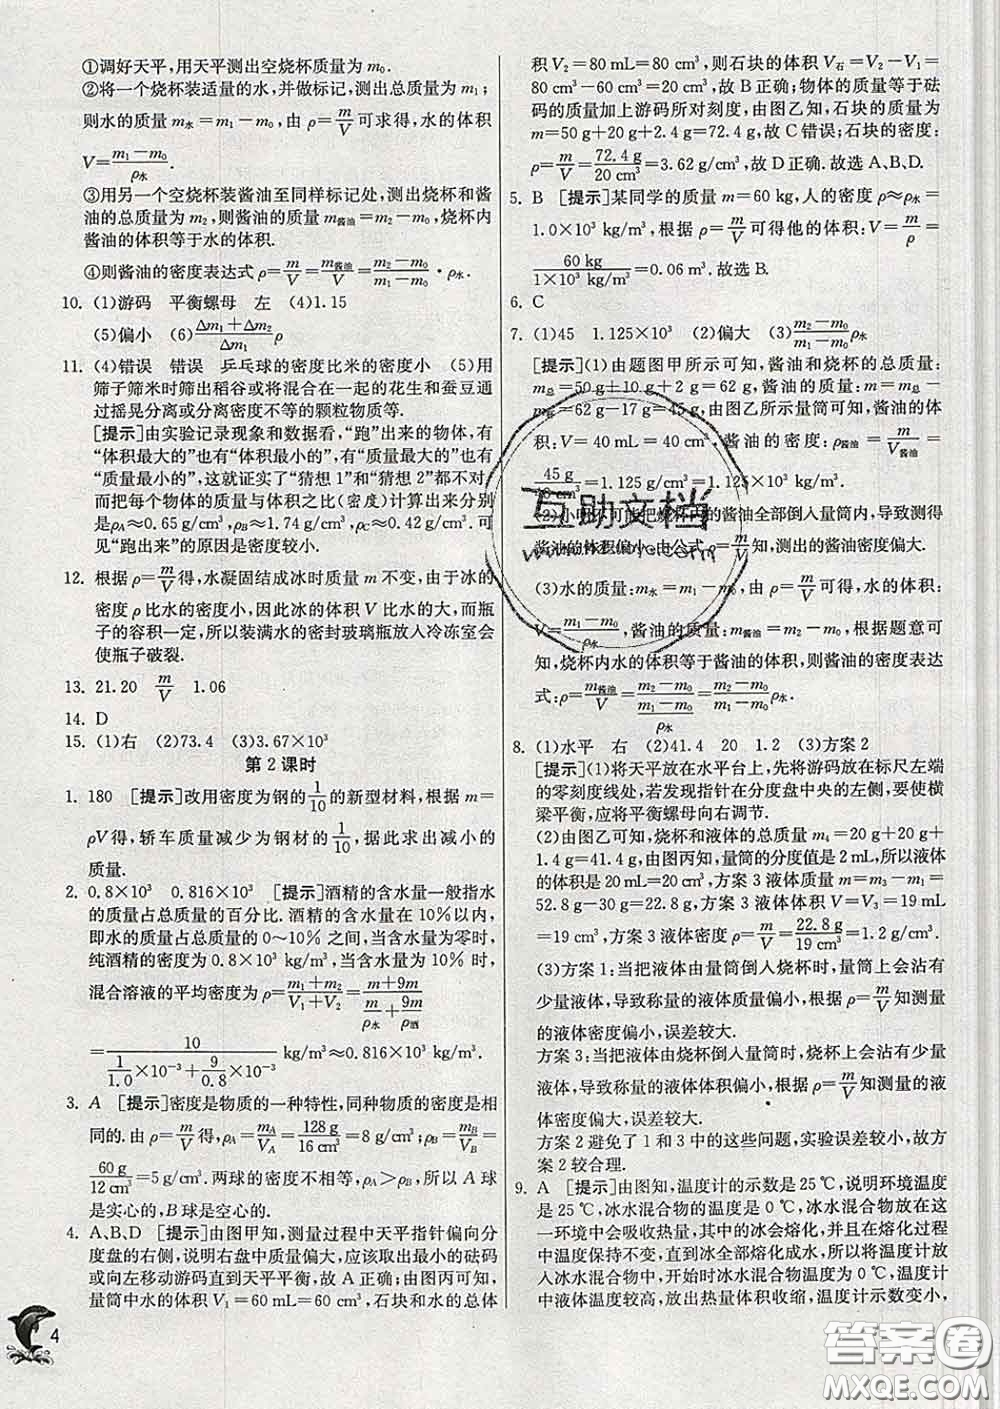 ①调好天平,用天平测出空烧杯质量为m₀.
②将一个烧杯装适量的水,并做标记,测出总质量为m₁;
则水的质量m水=m₁-m₀,由ρ=m/V可求得,水的体积
V=(m₁-m₀)/ρ水.
③用另一个空烧杯装酱油至同样标记处,测出烧杯和酱
油的总质量为m₂,则酱油的质量m酱油=m₂-m₀,烧杯内
酱油的体积等于水的体积.
④则酱油的密度表达式ρ=m/V=m酱油/V=(m₂-m₀)/(m₁-m₀)·ρ水.
10. (1)游码 平衡螺母 左 (4)1.15
(5)偏小 (6)(Δm₁+Δm₂)/Δm₁ ρ
11. (4)错误 错误 乒乓球的密度比米的密度小 (5)用
筛子筛米时筛出稻谷或将混合在一起的花生和蚕豆通
过摇晃分离或分离密度不等的颗粒物质等.
[提示]由实验记录现象和数据看,“跑”出来的物体,有
“体积最大的”也有“体积最小的”,有“质量最大的”也有
“质量最小的”,这就证实了“猜想1”和“猜想2”都不对.
而把每个物体的质量与体积之比(密度)计算出来分别
是ρA≈0.65 g/cm³,ρB≈1.74 g/cm³,ρC≈0.42 g/cm³.可
见“跑出来”的原因是密度较小.
12. 根据ρ=m/V得,水凝固结成冰时质量m不变,由于冰的
密度ρ比水的密度小,因此冰的体积V比水的大,而瓶
子的容积一定,所以装满水的密封玻璃瓶放入冷冻室会
使瓶子破裂.
13. 21.20 m/V 1.06
14. D
15. (1)右 (2)73.4 (3)3.67×10³
第2课时
1. 180 [提示]改用密度为钢的1/10的新型材料,根据m=
ρV得,轿车质量减少为钢材的1/10,据此求出减小的
质量.
2. 0.8×10³ 0.816×10³ [提示]酒精的含水量一般指水
的质量占总质量的百分比.酒精的含水量在10%以内,
即水的质量占总质量的0~10%之间,当含水量为零时,
纯酒精的密度为0.8×10³ kg/m³,当含水量为10%时,
混合溶液的平均密度为ρ=(m₁+m₂)/(V₁+V₂)=(m+9m)/(m/ρ水+9m/ρ酒)
=10/(1/1.0×10⁻³+9/0.8×10⁻³) kg/m³≈0.816×10³ kg/m³.
3. A [提示]密度是物质的一种特性,同种物质的密度是相
同的.由ρ=m/V得,ρA=mA/VA=128 g/16 cm³=8 g/cm³;ρB=mB/VB=
60 g/12 cm³=5 g/cm³.两球的密度不相等,ρA>ρB,所以A球
是实心的,B球是空心的.
4. A、B、D [提示]由图甲知,测量过程中天平指针偏向分
度盘的右侧,说明右盘中质量偏大,应该取出最小的砝码
或向左移动游码直到天平平衡,故A正确;由图丙可知,
量筒中水的体积V₁=60 mL=60 cm³,石块和水的总体
积V₂=80 mL=80 cm³,则石块的体积V石=V₂-V₁=
80 cm³-60 cm³=20 cm³,故B正确;物体的质量等于砝
码的质量加上游码所对刻度,由图乙知,石块的质量为
m=50 g+20 g+2.4 g=72.4 g,故C错误;石块的密度:
ρ=m/V=72.4 g/20 cm³=3.62 g/cm³,故D正确.故选A、B、D.
5. B [提示]某同学的质量m=60 kg,人的密度ρ≈ρ水=
1.0×10³ kg/m³,根据ρ=m/V可得他的体积:V=m/ρ=
60 kg/1×10³ kg/m³=0.06 m³.故选B.
6. C
7. (1)45 1.125×10³ (2)偏大 (3)(m₂-m₀)/(m₁-m₀)ρ水
[提示](1)由题图甲所示可知,酱油和烧杯的总质量:
m总=50 g+10 g+2 g=62 g,酱油的质量:m=m总-
m杯=62 g-17 g=45 g;由图乙所示量筒可知,酱油的体
积:V=40 mL=40 cm³,酱油的密度:ρ酱油=m/V酱油=
45 g/40 cm³=1.125 g/cm³=1.125×10³ kg/m³.
(2)小明不可能把烧杯内的酱油全部倒入量筒内,导致测得
酱油的体积偏小,由公式ρ=m/V知,测出的酱油密度偏大.
(3)水的质量:m水=m₁-m₀,由ρ=m/V可得,水的体积:
V=(m₁-m₀)/ρ水,酱油的质量:m酱油=m₂-m₀,根据题意可
知,烧杯内水的体积等于酱油的体积,则酱油的密度表达
式:ρ=m酱油/V=(m₂-m₀)/((m₁-m₀)/ρ水)=(m₂-m₀)/(m₁-m₀)ρ水.
8. (1)水平 右 (2)41.4 20 1.2 (3)方案2
[提示](1)将天平放在水平台上,先将游码放在标尺左端
的零刻度线处,若发现指针在分度盘中央的左侧,要使横
梁平衡,应将平衡螺母向右调节.
(2)由图乙可知,烧杯和液体的总质量m₄=20 g+20 g+
1.4 g=41.4 g,由图丙知,量筒的分度值是2 mL,所以液体
的体积是20 mL=20 cm³,方案3液体质量m=m₃-m₁=
52.8 g-30 g=22.8 g,方案3液体体积V=V₃=19 mL
=19 cm³,方案3液体密度ρ=m/V=22.8 g/19 cm³=1.2 g/cm³.
(3)方案1:当把液体由量筒倒入烧杯时,量筒上会沾有
少量液体,导致称量的液体质量偏小,根据ρ=m/V知测量
的液体密度偏小,误差较大.
方案3:当把液体由烧杯倒入量筒时,烧杯上会沾有少量
液体,导致称量的液体体积偏小,根据ρ=m/V知测量的液
体密度偏大,误差较大.
方案2避免了1和3中的这些问题,实验误差较小,故方
案2较合理.
9. A [提示]由图知,温度计的示数是25℃,说明环境温度
是25℃,冰水混合物的温度是0℃,冰水混合物放在这
一环境中会吸收热量,其中的冰会熔化,并且在熔化过程
中温度保持不变,直到冰全部熔化成水,所以将温度计放
入冰水混合物中,开始时冰水混合物的温度为0℃,而温
度计液体温度较高,放出热量体积收缩,温度计示数变小,
4
互助文档
答案圈
MXQE.COM